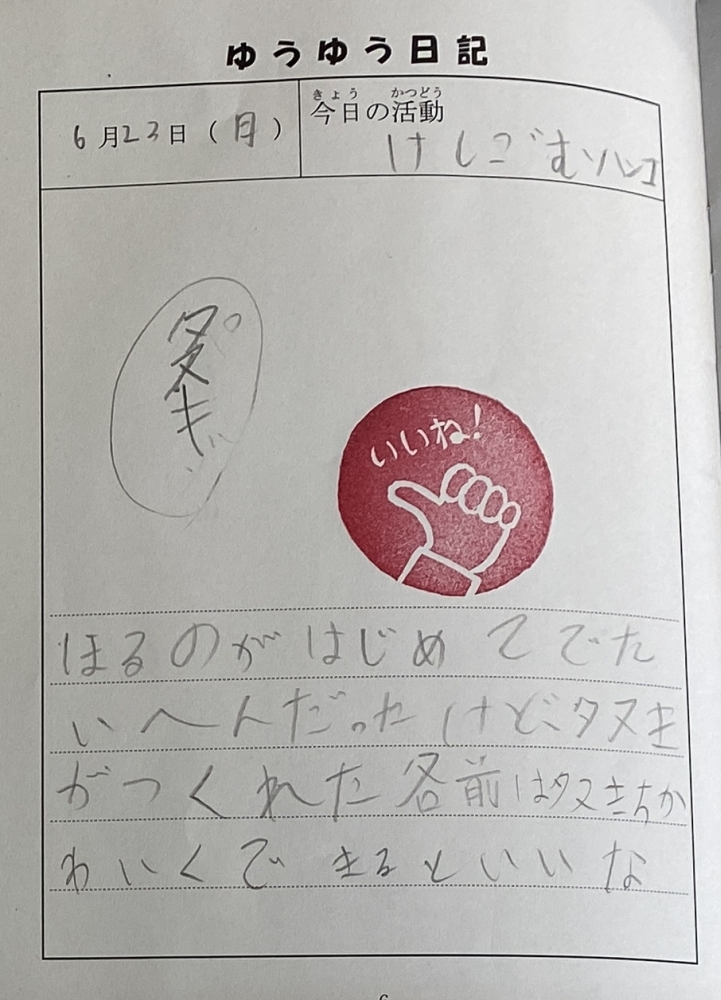 ゆうゆう日記
6月23日(日)
きょう かつどう
今日の活動
けしごむソハンコ
タヌキ
いいね!
ほるのがはじめてでた
いへんだったけど、タヌキ
がつくれた各前はタヌきちか
わいくできるといいな